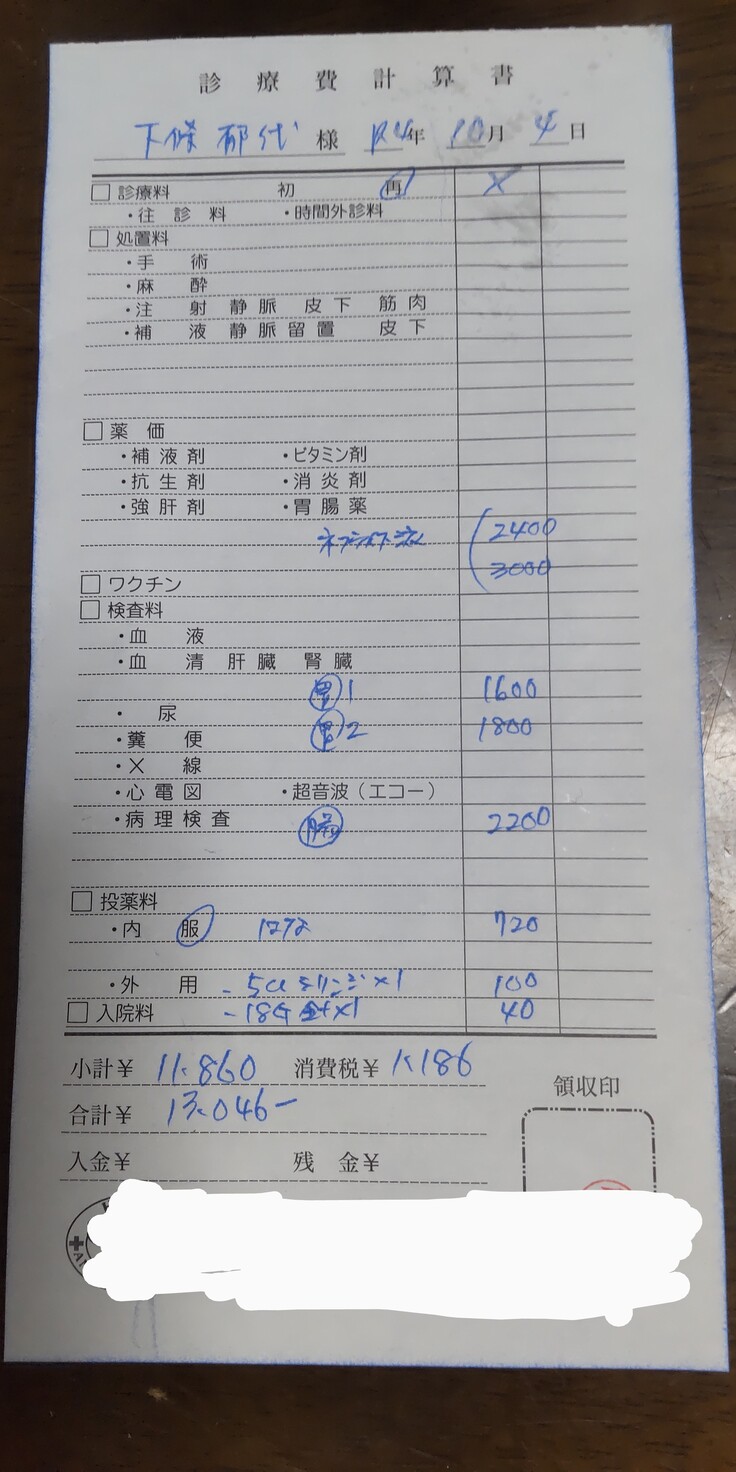 診療費計算書
下條 郁代 様 R4年 10月 4日
□ 診療料 初 再 ×
・往診料 ・時間外診料
□ 処置料
・手術
・麻酔
・注射 静脈 皮下 筋肉
・補液 静脈留置 皮下
□ 薬価
・補液剤 ・ビタミン剤
・抗生剤 ・消炎剤
・強肝剤 ・胃腸薬
2400
3000
□ ワクチン
□ 検査料
・血液
・血清 肝臓 腎臓
1 1600
・尿
2 1800
・糞便
・X線
・心電図 ・超音波（エコー）
・病理検査 2200
□ 投薬料
・内服 720
・外用 - 5cc シリンジ×1 100
□ 入院料 - 18G 針×1 40
小計¥ 11,860 消費税¥ 1,186
合計¥ 13,046-
領収印
入金¥ 残金¥